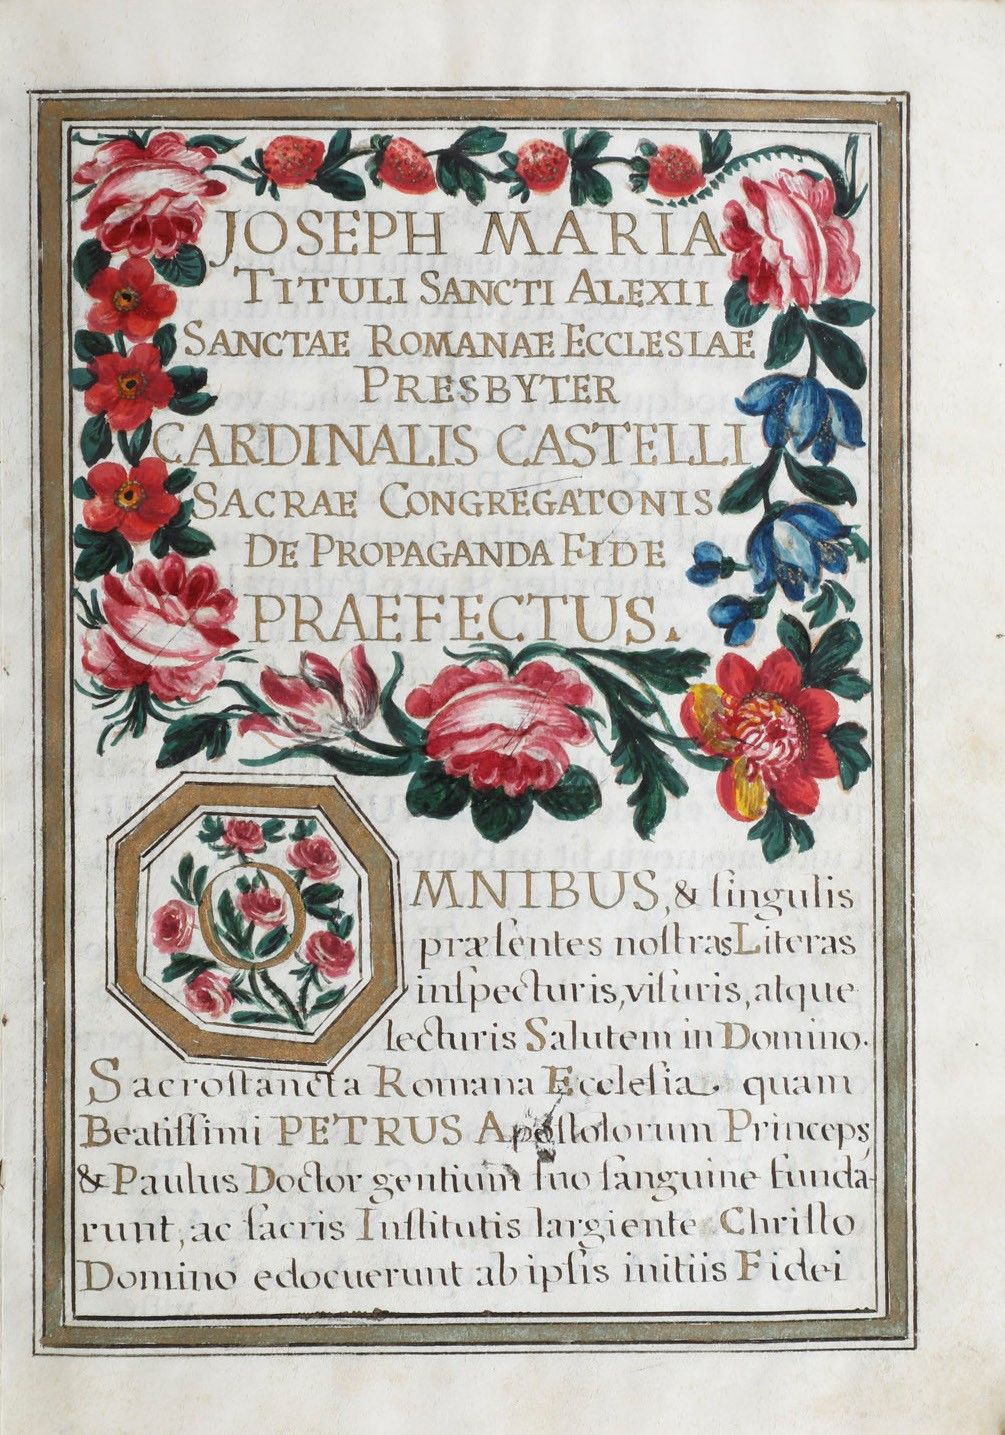 JOSEPH MARIA
TITULI SANCTI ALEXII
SANCTAE ROMANAE ECCLESIAE
PRESBYTER
CARDINALIS CASTELLI
SACRAE CONGREGATONIS
DE PROPAGANDA FIDE
PRAEFECTUS.
OMNIBUS, & ſingulis
præſentes noſtras Literas
inſpecturis, viſuris, atque
lecturis Salutem in Domino.
Sacroſtancta Romana Eccleſia. quam
Beatiſſimi PETRUS Apoſtolorum Princeps
& Paulus Doctor gentium ſuo ſanguine funda-
runt, ac ſacris Inſtitutis largiente Chriſto
Domino edocuerunt ab ipſis initiis Fidei